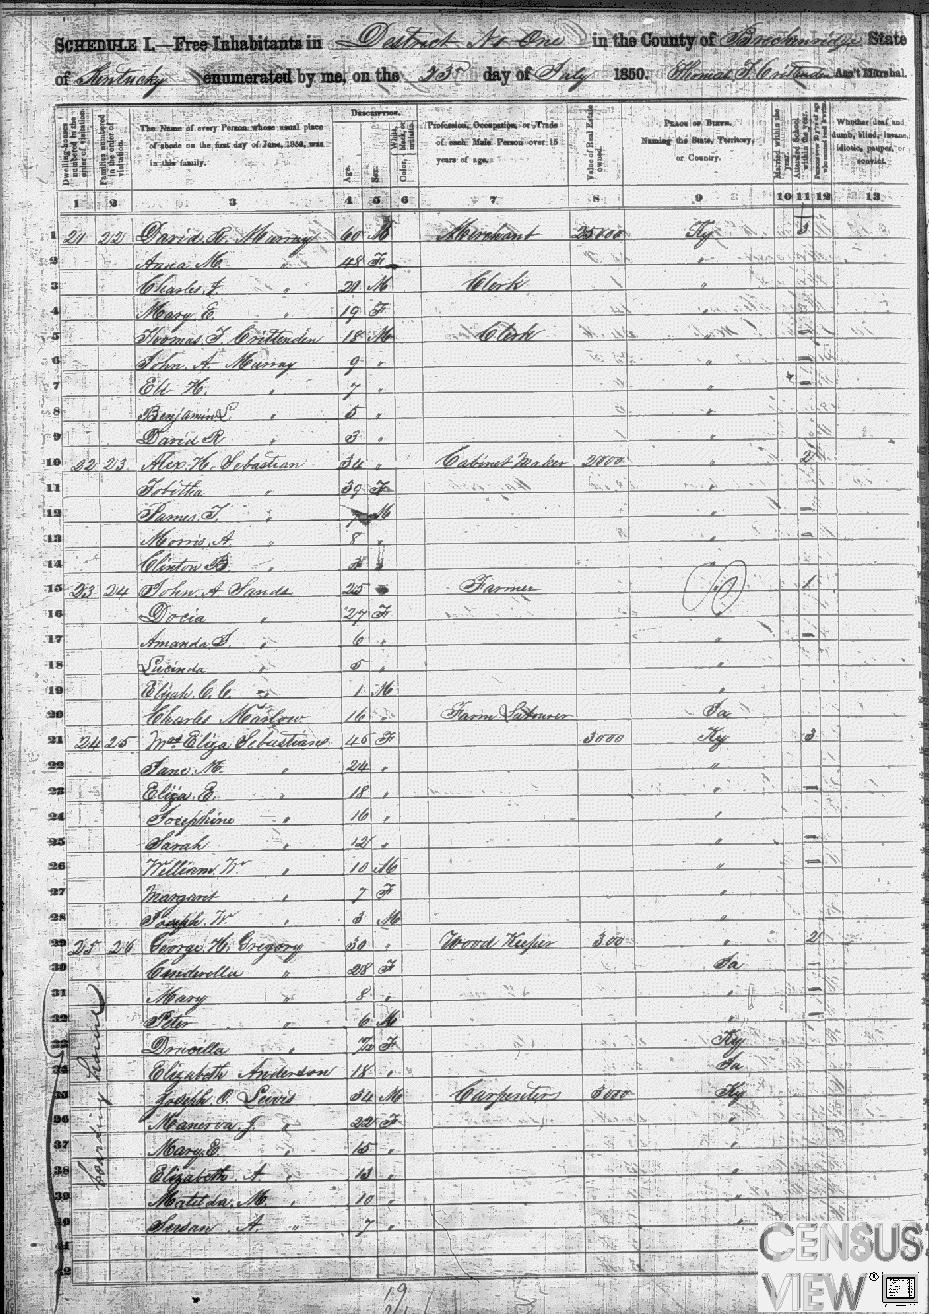 SCHEDULE I.—Free Inhabitants in District No One in the County of Breckenridge State
of Kentucky enumerated by me, on the 23d day of July 1850. Thomas T. Crittenden Ass't Marshal.
DESCRIPTION.
Dwelling-houses numbered in the order of visitation.
Families numbered in the order of visitation.
The Name of every Person whose usual place of abode on the first day of June, 1850, was in this family.
Age.
Sex.
White, black, or mulatto.
Color,
Profession, Occupation, or Trade of each Male Person over 15 years of age.
Value of Real Estate owned.
PLACE OF BIRTH. Naming the State, Territory, or Country.
Married within the year.
Attended School within the year.
Whether deaf and dumb, blind, insane, idiotic, pauper, or convict.
1 2 3 4 5 6 7 8 9 10 11 12 13
1 21 22 David R. Murray 60 M Merchant 25000 Ky
2 Anna M. " 48 F "
3 Charles J. " 21 M Clerk "
4 Mary E. " 19 F "
5 Thomas T. Crittenden 18 M Clerk "
6 John A. Murray 9 " "
7 Eli H. " 7 " "
8 Benjamin L " 5 " "
9 David R " 3 " "
10 22 23 Alex. H. Sebastian 34 " Cabinet Maker 2000 " 2
11 Tobitha " 39 F "
12 James T. " M "
13 Morris A. " 8 " "
14 Clinton B. " "
15 23 24 John A Sands 25 Farmer 1
16 Docia " 27 F "
17 Amanda " 6 " "
18 Lucinda " 5 " "
19 Elijah C. C. " 1 M "
20 Charles Marlow 16 " Farm Labourer Ia
21 24 25 Mrs Eliza Sebastian 46 F 3000 Ky 3
22 Jane M. " 24 " "
23 Eliza. E. " 18 " "
24 Josephine " 16 " "
25 Sarah " 12 " "
26 William W " 10 M "
27 Margaret " 7 F "
28 Joseph W " 3 M "
29 25 26 George H. Gregory 30 " Wood Keeper 300 " 2
30 Cinderella " 28 F Ia
31 Mary " 8 " "
32 Peter " 6 M "
33 Drucilla " F Ky
34 Elizabeth Anderson 18 " Ia
35 Joseph C. Lewis 34 M Carpenter 3000 Ky
36 Manerva J. " 22 F "
37 Mary E. " 15 " "
38 Elizabeth A " 13 " "
39 Matilda M. " 10 " "
40 Susan A " 7 " "
41
42
boarding house
19
CENSUS
VIEW®